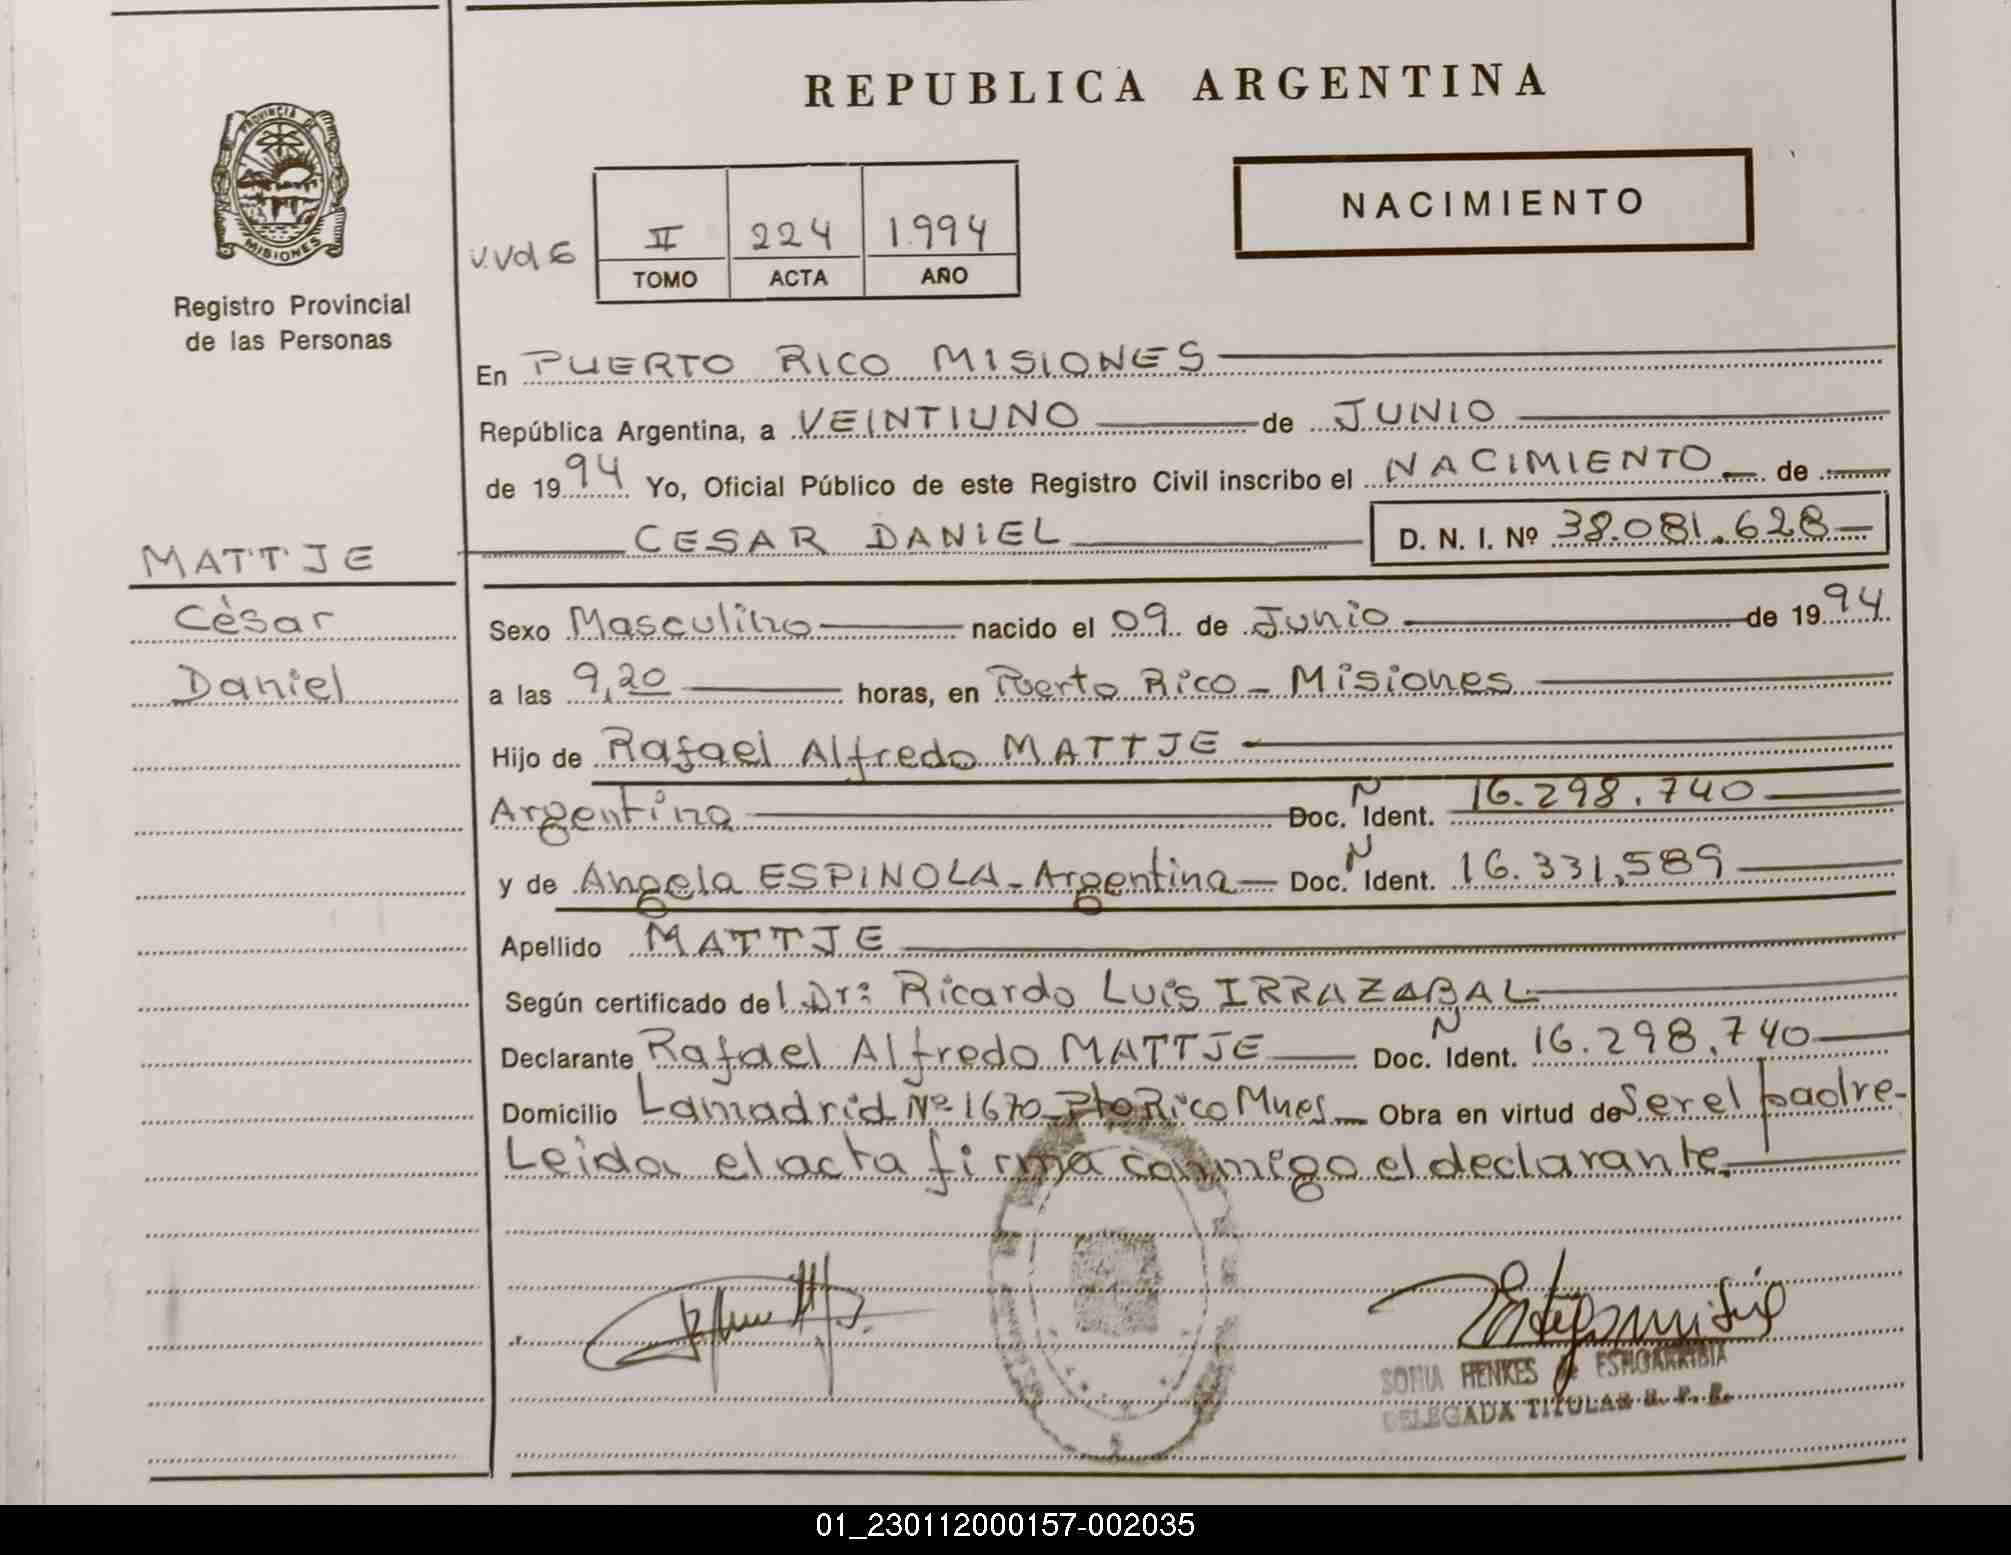 REPUBLICA ARGENTINA
PROVINCIA DE
MISIONES
Registro Provincial
de las Personas
NACIMIENTO
II 224 1.994
TOMO ACTA AÑO
En PUERTO RICO MISIONES
República Argentina, a VEINTIUNO de JUNIO
de 1994 Yo, Oficial Público de este Registro Civil inscribo el NACIMIENTO de
CESAR DANIEL D. N. I. Nº 38.081.628
MATTJE
César
Daniel
Sexo Masculino nacido el 09 de Junio de 1994
a las 9,20 horas, en Puerto Rico - Misiones
Hijo de Rafael Alfredo MATTJE
Argentina Doc. N Ident. 16.298.740
y de Angela ESPINOLA - Argentina Doc. N Ident. 16.331.589
Apellido MATTJE
Según certificado del Dr: Ricardo Luis IRRAZABAL
Declarante Rafael Alfredo MATTJE Doc. N Ident. 16.298.740
Domicilio Lamadrid Nº 1670 - Pto Rico Mnes. Obra en virtud de Ser el padre-
Leida el acta firma conmigo el declarante.
SONIA HENKES de
DELEGADA TITULAR R. P. P.
01_230112000157-002035